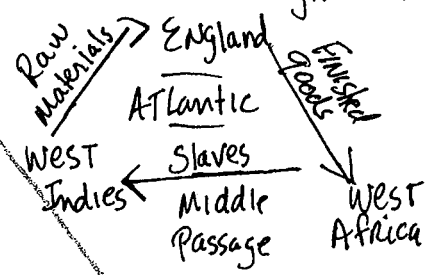 ENGLAND
Raw
Materials
FINISHED
goods
ATLANTIC
West
Indies
Slaves
Middle
Passage
West
Africa